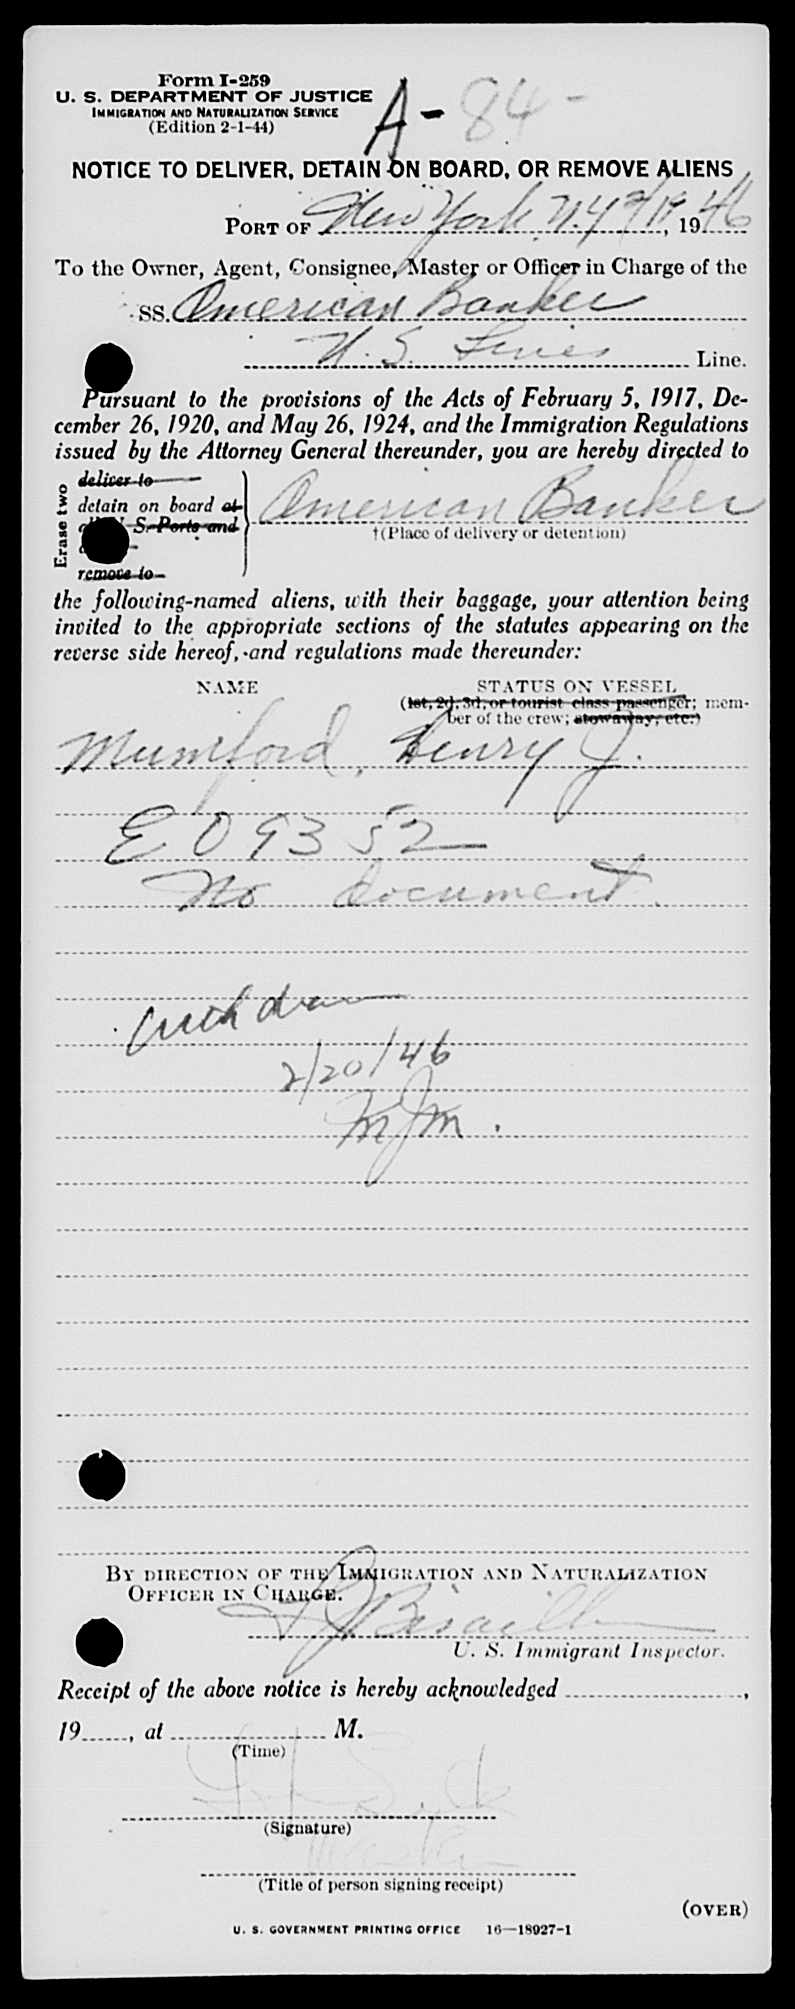 Form I-259
U. S. DEPARTMENT OF JUSTICE
IMMIGRATION AND NATURALIZATION SERVICE
(Edition 2-1-44)
A-84-
NOTICE TO DELIVER, DETAIN ON BOARD, OR REMOVE ALIENS
PORT OF New York, N.Y. 2/19, 1946
To the Owner, Agent, Consignee, Master or Officer in Charge of the
SS. American Banker
U. S. Lines Line.
Pursuant to the provisions of the Acts of February 5, 1917, De-
cember 26, 1920, and May 26, 1924, and the Immigration Regulations
issued by the Attorney General thereunder, you are hereby directed to
Erase two
deliver to
detain on board at American Banker
U. S. Ports and
†(Place of delivery or detention)
remove to
the following-named aliens, with their baggage, your attention being
invited to the appropriate sections of the statutes appearing on the
reverse side hereof, and regulations made thereunder:
NAME STATUS ON VESSEL
(1st, 2d, 3d, or tourist class passenger; mem-
ber of the crew; stowaway, etc.)
Mumford, Henry J.
E 09352
No document.
2/20/46
MJM.
BY DIRECTION OF THE IMMIGRATION AND NATURALIZATION
OFFICER IN CHARGE.
U. S. Immigrant Inspector.
Receipt of the above notice is hereby acknowledged ,
19 , at M.
(Time)
(Signature)
(Title of person signing receipt)
(OVER)
U. S. GOVERNMENT PRINTING OFFICE 16—18927-1